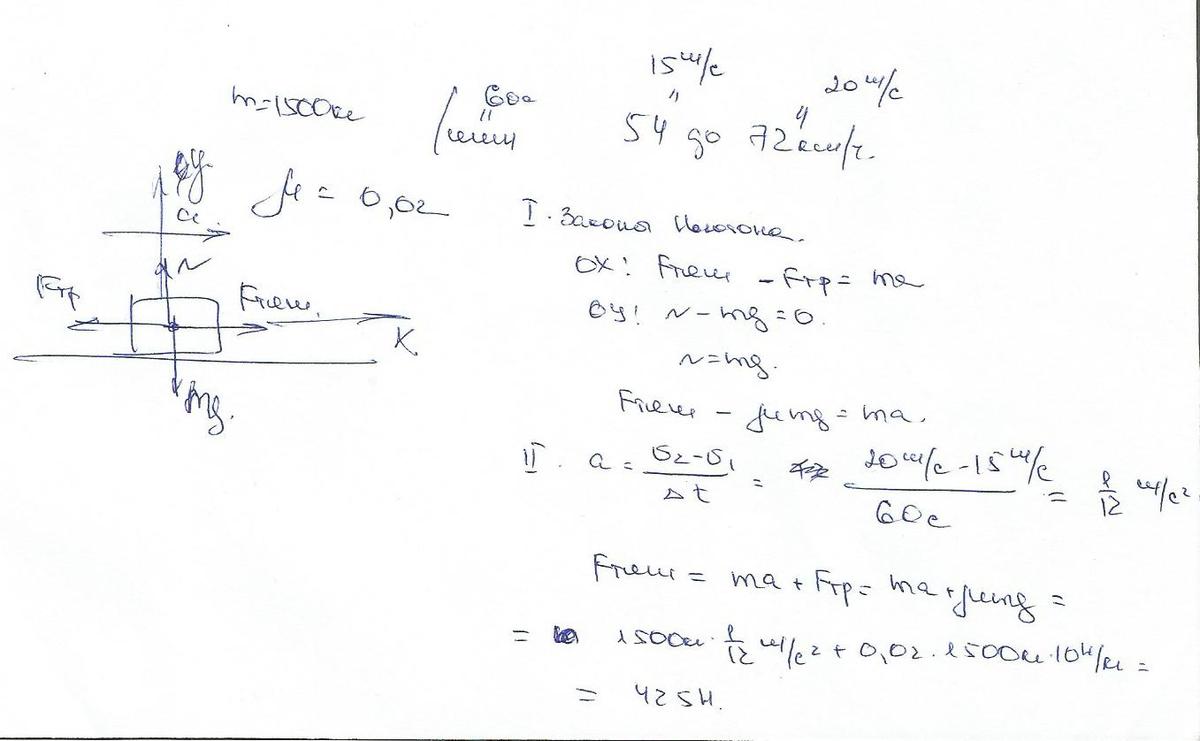 15 м/с
20 м/с
m=1500кг
60с
"
"
"
/мин
54 до 72км/ч.
μ = 0,02
OY
a
N
Fтр
Fтяги
X
mg.
I. Законы Ньютона.
OX: Fтяги - Fтр = ma
OY: N - mg = 0.
N = mg.
Fтяги - μmg = ma.
II. a = (υ₂-υ₁)/Δt = (20м/с - 15м/с)/60с = 1/12 м/с².
Fтяги = ma + Fтр = ma + μmg =
= 1500кг · 1/12 м/с² + 0,02 · 1500кг · 10Н/кг =
= 425Н.